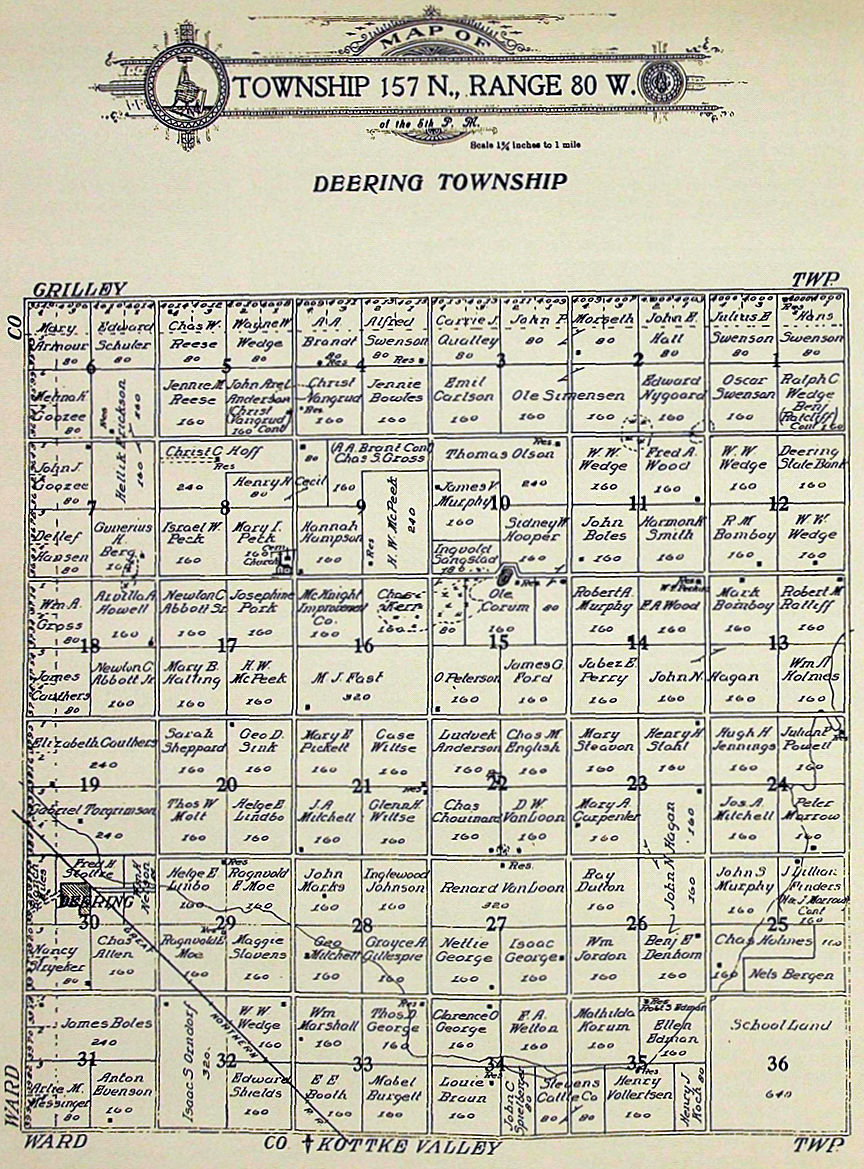 MAP OF
TOWNSHIP 157 N., RANGE 80 W.
of the 5th P. M.
Scale 1¾ inches to 1 mile
DEERING TOWNSHIP
GRILLEY
TWP.
CO
Mary
Armour
80
Edward
Schuler
80
6
Goozee
80
Hellik Erickson
240
160
Res
Chas W.
Reese
80
Wayne W
Wedge
80
5
Jennie M
Reese
160
John Axel
Anderson
Christ
Vangrud
160 Cont
A A
Brandt
80
Res
Alfred
Swenson
80 Res
4
Christ
Vangrud
Res
160
Jennie
Bowles
160
Carrie J
Qualley
80
John P.
80
3
Emil
Carlson
160
Ole Simensen
160
160
Morseth
80
John E.
Hall
80
2
Edward
Nygaard
160
Julius E
Swenson
80
Res
Hans
Swenson
80
1
Oscar
Swenson
160
Ralph C
Wedge
Benj
Ratcliff
Cont 160
John J
Goozee
80
7
Detlef
Hansen
80
Gunerius
H
Berg
160
Christ C Hoff
Res
240
Henry H
80
Cecil
8
Israel W.
Peck
160
Mary I.
Peck
160
Cem
Church
80
(A A. Brant Cont)
Chas S. Gross
160
9
Hannah
Hampson
160
H. W. McPeek
240
Res
Thomas Olson
Res
240
James V
Murphy
160
10
Ingvold
Sangstad
Sidney W
Hooper
160
W. W.
Wedge
160
Fred A.
Wood
160
11
John
Boles
160
Harmon K
Smith
160
W. W.
Wedge
160
Deering
State Bank
160
12
R M
Bomboy
160
W. W.
Wedge
160
Wm A
Gross
80
Alvilla A
Howell
160
18
James
Couthers
80
Newton C
Abbott Jr
160
Newton C
Abbott Sr
160
Josephine
Park
160
17
Mary B.
Halling
160
H. W.
McPeek
160
McKnight
Improvement
Co.
160
Chas
Kerr
160
16
M J. Fast
320
80
Ole
Corum
160
Res
80
15
O Peterson
160
James G
Ford
160
Robert A.
Murphy
160
Res
F A Wood
160
14
Jabez E
Perry
160
John N. Hagan
160
160
Mark
Bomboy
160
Robert M
Ratliff
160
13
Wm A
Holmes
160
Elizabeth Couthers
240
19
Gabriel Torgrimson
240
Sarah
Sheppard
160
Geo D.
Sink
160
20
Thos W
Mott
160
Helge E
Lindbo
160
Mary E
Pickett
160
Case
Wiltse
160
Res
21
J. A
Mitchell
160
Glenn H.
Wiltse
160
Ludvek
Anderson
160
Chas M
English
160
22
Chas
Chouinard
160
D. W.
Van Loon
160
Mary
Steavon
160
Henry H
Stahl
160
23
Mary A
Carpenter
160
John N Hagan
160
160
Hugh H
Jennings
160
Julian P
Powell
160
Res
24
Jos. A
Mitchell
160
Peter
Morrow
160
Fred H
Stoltze
Wm H
Nelson
DEERING
30
Nancy
Stryeker
80
Chas
Allen
160
GREAT
Helge E
Linbo
160
Res
Ragnvold
E Moe
160
29
Res
Ragnvold E
Moe
160
Maggie
Slavens
160
John
Marks
160
Inglewood
Johnson
160
28
Geo
Mitchell
160
Grayce A
Gillespie
160
Res.
Renard Van Loon
320
27
Nellie
George
160
Isaac
George
160
Ray
Dutton
160
26
Wm
Jordon
160
Benj E
Denhom
160
John S
Murphy
160
J Lillian
Flinders
Cont
160
25
Chas Holmes
160
160
Nels Bergen
James Boles
240
31
Arlie M.
Messinger
80
Anton
Evenson
160
Isaac S Orndorf
320
NORTHERN
W W
Wedge
160
32
Edward
Shields
160
Wm
Marshall
160
Res
Thos D
George
160
33
E E
Booth
160
Mabel
Burgett
160
R.R.
Clarence O
George
160
F. A.
Welton
160
34
Louie
Braun
160
Res
John C
Spielberger
80
Stevens
Cattle Co
80
80
Mathilda
Korum
160
Res
Robt S Edman
Ellen
Edman
160
35
Res
Henry
Vollertsen
160
Henry J
Koch 80
School Land
36
640
WARD
WARD
CO
KOTTKE VALLEY
TWP.